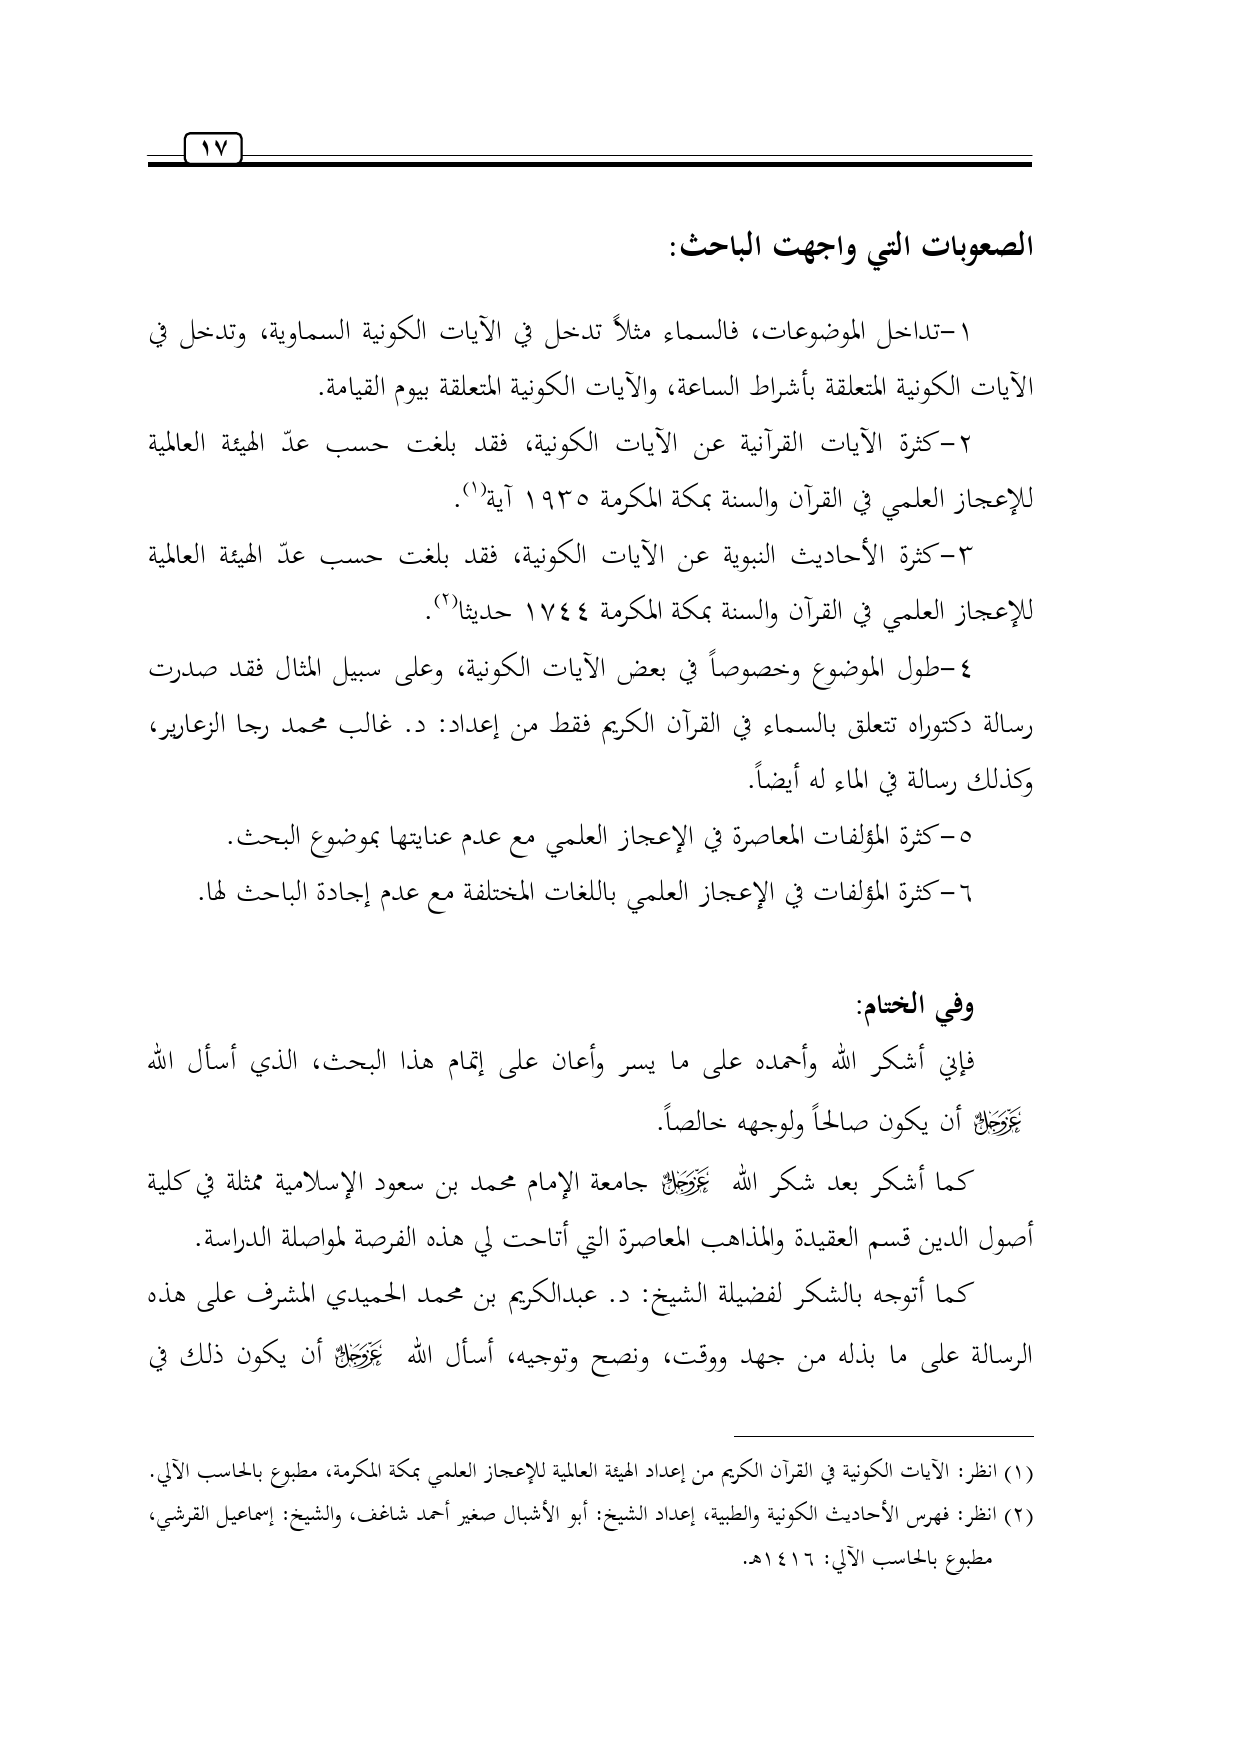 ١٧
الصعوبات التي واجهت الباحث:
١-تداخل الموضوعات، فالسماء مثلاً تدخل في الآيات الكونية السماوية، وتدخل في
الآيات الكونية المتعلقة بأشراط الساعة، والآيات الكونية المتعلقة بيوم القيامة.
٢-كثرة الآيات القرآنية عن الآيات الكونية، فقد بلغت حسب عدّ الهيئة العالمية
للإعجاز العلمي في القرآن والسنة بمكة المكرمة ١٩٣٥ آية(١).
٣-كثرة الأحاديث النبوية عن الآيات الكونية، فقد بلغت حسب عدّ الهيئة العالمية
للإعجاز العلمي في القرآن والسنة بمكة المكرمة ١٧٤٤ حديثا(٢).
٤-طول الموضوع وخصوصاً في بعض الآيات الكونية، وعلى سبيل المثال فقد صدرت
رسالة دكتوراه تتعلق بالسماء في القرآن الكريم فقط من إعداد: د. غالب محمد رجا الزعارير،
وكذلك رسالة في الماء له أيضاً.
٥-كثرة المؤلفات المعاصرة في الإعجاز العلمي مع عدم عنايتها بموضوع البحث.
٦-كثرة المؤلفات في الإعجاز العلمي باللغات المختلفة مع عدم إجادة الباحث لها.
وفي الختام:
فإني أشكر الله وأحمده على ما يسر وأعان على إتمام هذا البحث، الذي أسأل الله
عَزَّوَجَلَّ أن يكون صالحاً ولوجهه خالصاً.
كما أشكر بعد شكر الله عَزَّوَجَلَّ جامعة الإمام محمد بن سعود الإسلامية ممثلة في كلية
أصول الدين قسم العقيدة والمذاهب المعاصرة التي أتاحت لي هذه الفرصة لمواصلة الدراسة.
كما أتوجه بالشكر لفضيلة الشيخ: د. عبدالكريم بن محمد الحميدي المشرف على هذه
الرسالة على ما بذله من جهد ووقت، ونصح وتوجيه، أسأل الله عَزَّوَجَلَّ أن يكون ذلك في
(١) انظر: الآيات الكونية في القرآن الكريم من إعداد الهيئة العالمية للإعجاز العلمي بمكة المكرمة، مطبوع بالحاسب الآلي.
(٢) انظر: فهرس الأحاديث الكونية والطبية، إعداد الشيخ: أبو الأشبال صغير أحمد شاغف، والشيخ: إسماعيل القرشي،
مطبوع بالحاسب الآلي: ١٤١٦هـ.